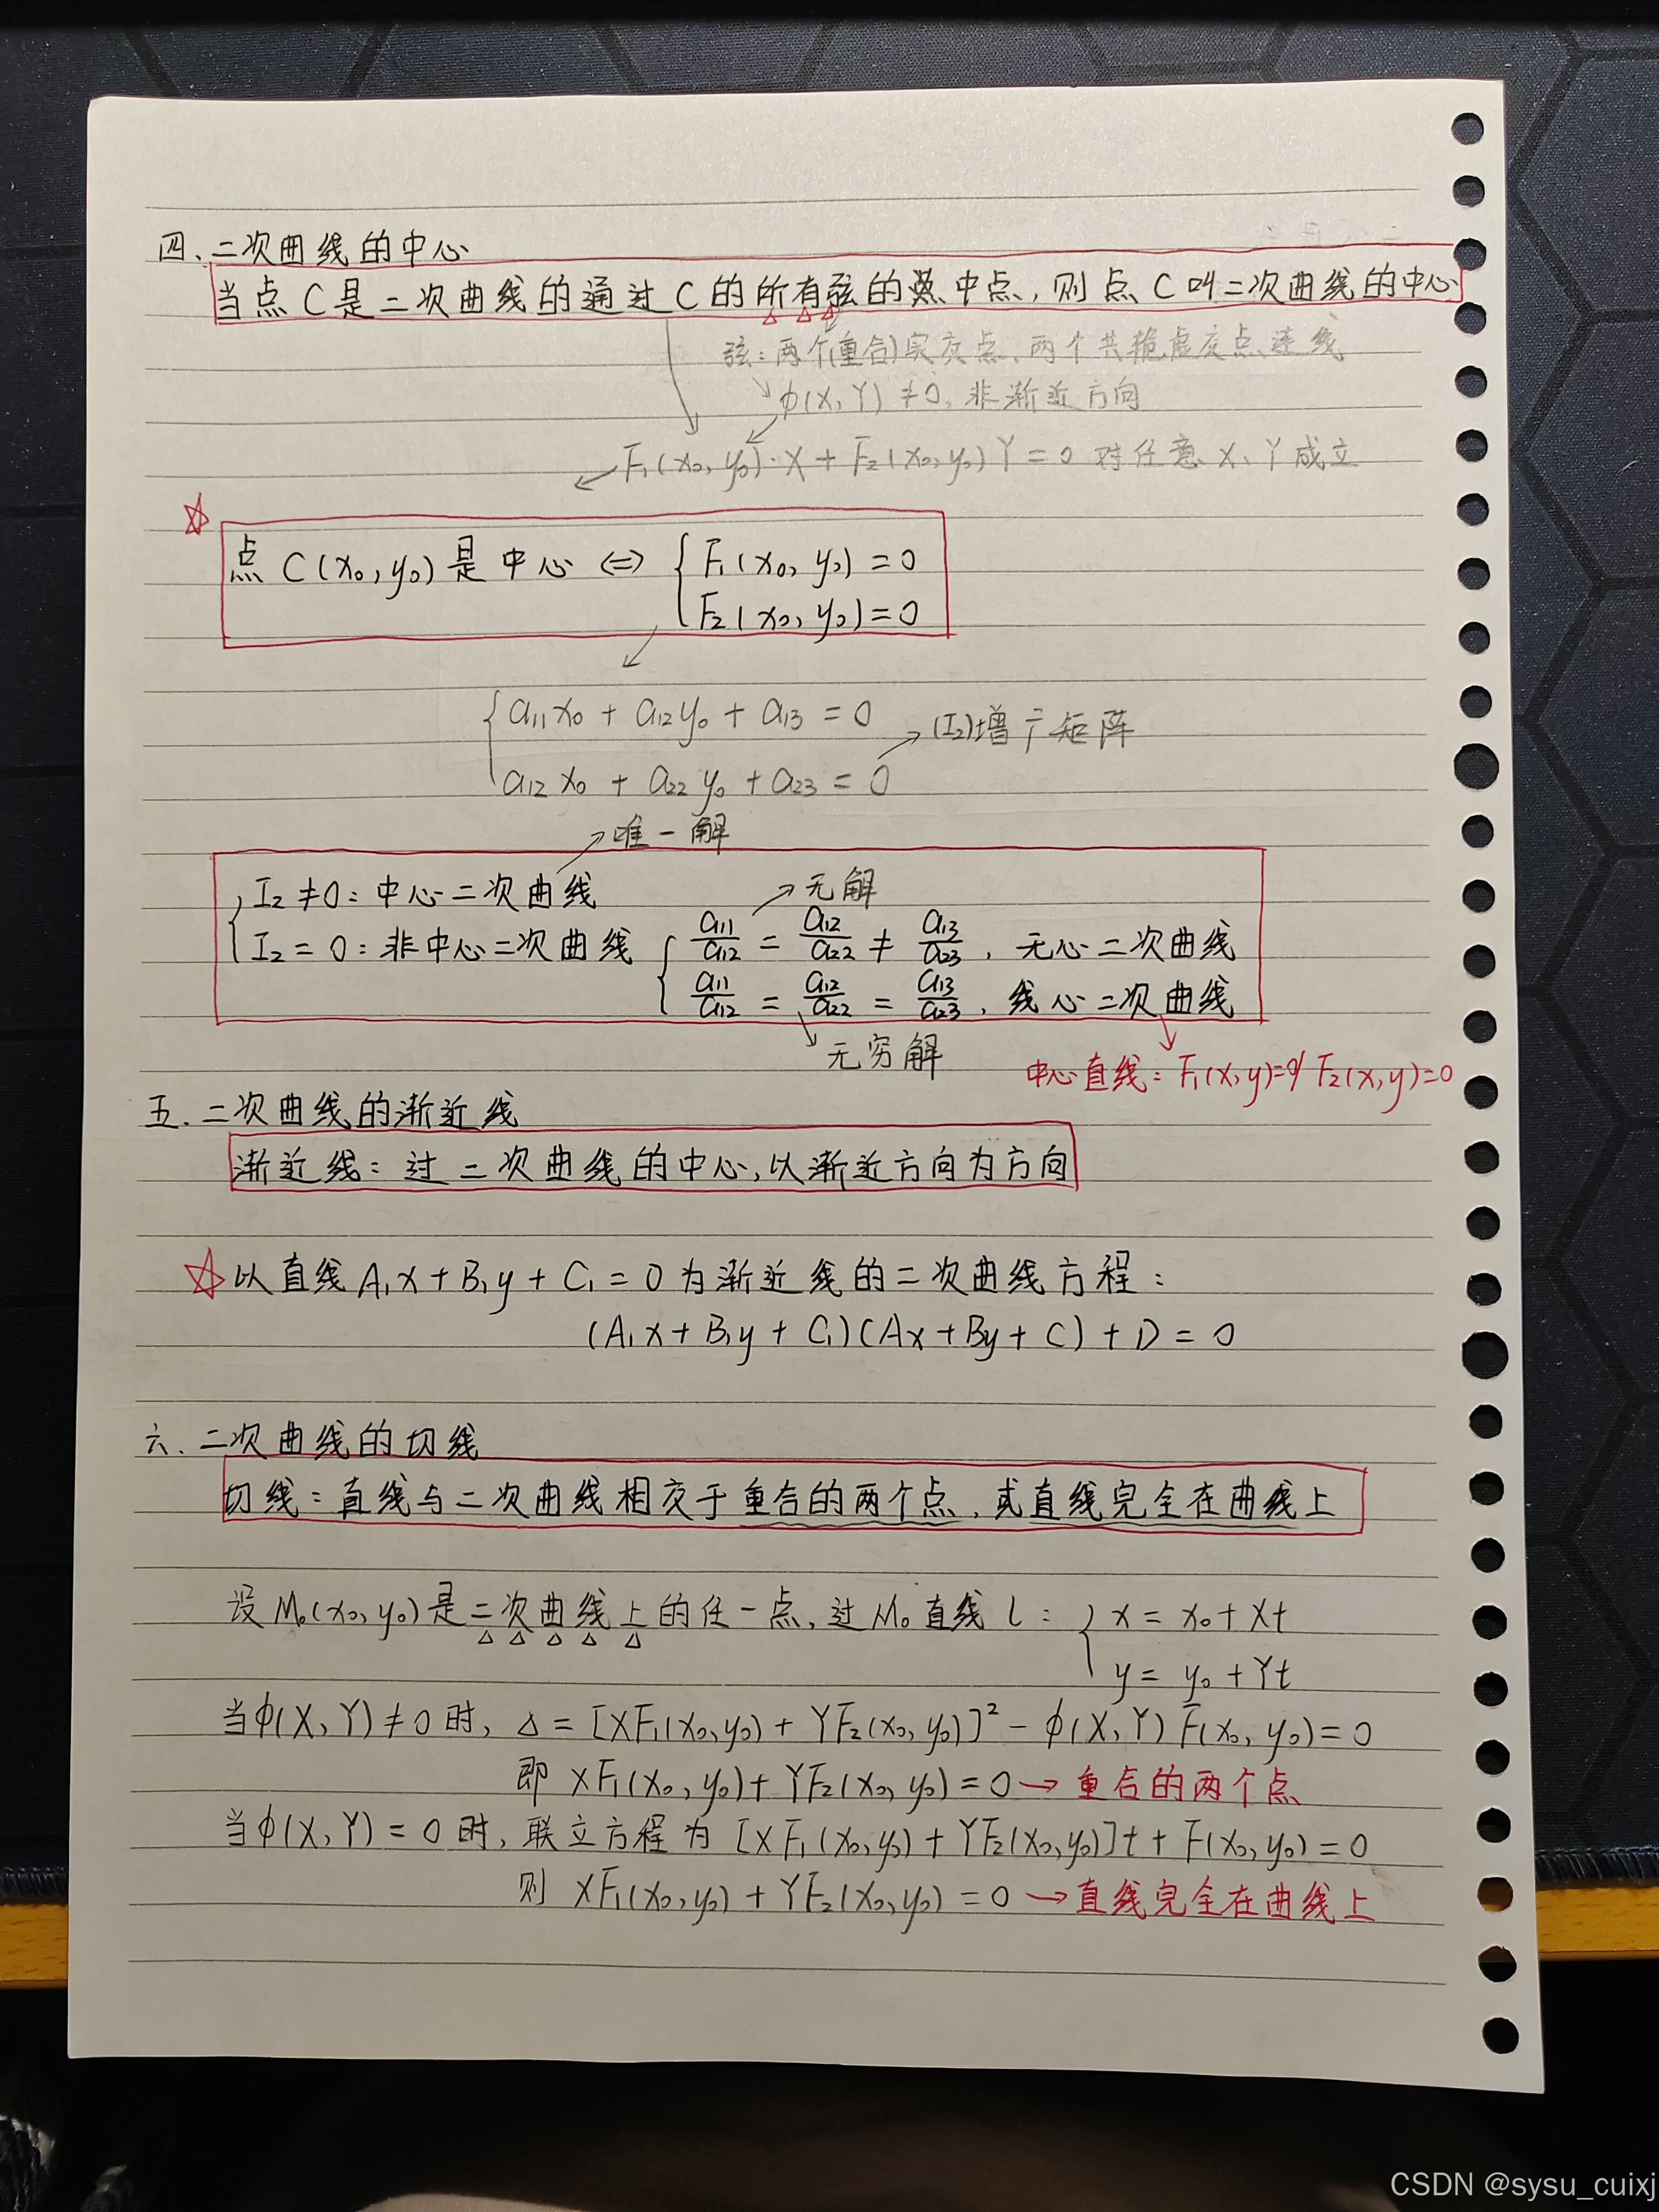 四、二次曲线的中心
当点C是二次曲线的通过C的所有弦的中点，则点C叫二次曲线的中心
弦：两个(重合)实交点、两个共轭虚交点连线
φ(X,Y)≠0，非渐近方向
F₁(x₀,y₀)·X+F₂(x₀,y₀)Y=0 对任意X、Y成立
点C(x₀,y₀)是中心 ⇔ { F₁(x₀,y₀)=0
F₂(x₀,y₀)=0
{ a₁₁x₀+a₁₂y₀+a₁₃=0
(I₂)增广矩阵
a₁₂x₀+a₂₂y₀+a₂₃=0
唯一解
I₂≠0：中心二次曲线
无解
I₂=0：非中心二次曲线 { a₁₁/a₁₂=a₁₂/a₂₂≠a₁₃/a₂₃，无心二次曲线
a₁₁/a₁₂=a₁₂/a₂₂=a₁₃/a₂₃，线心二次曲线
无穷解
中心直线：F₁(x,y)=0/F₂(x,y)=0
五、二次曲线的渐近线
渐近线：过二次曲线的中心，以渐近方向为方向
☆以直线A₁x+B₁y+C₁=0为渐近线的二次曲线方程：
(A₁x+B₁y+C₁)(Ax+By+C)+D=0
六、二次曲线的切线
切线：直线与二次曲线相交于重合的两个点，或直线完全在曲线上
设M₀(x₀,y₀)是二次曲线上的任一点，过M₀直线l：{ x=x₀+Xt
y=y₀+Yt
当φ(X,Y)≠0时，Δ=[XF₁(x₀,y₀)+YF₂(x₀,y₀)]²-φ(X,Y)F(x₀,y₀)=0
即 XF₁(x₀,y₀)+YF₂(x₀,y₀)=0→重合的两个点
当φ(X,Y)=0时，联立方程为[XF₁(x₀,y₀)+YF₂(x₀,y₀)]t+F(x₀,y₀)=0
则 XF₁(x₀,y₀)+YF₂(x₀,y₀)=0→直线完全在曲线上
CSDN @sysu_cuixj